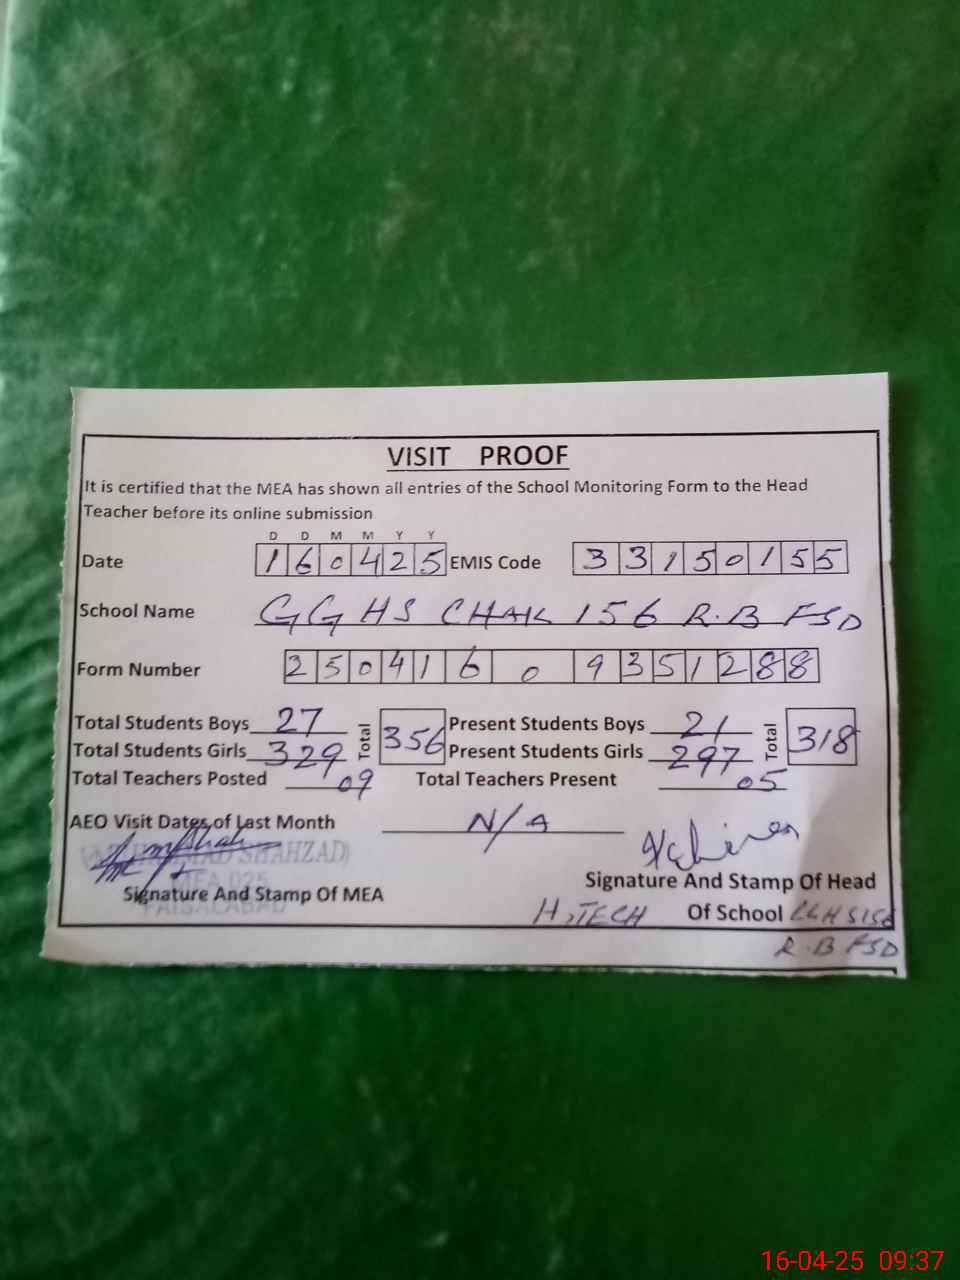 VISIT PROOF
It is certified that the MEA has shown all entries of the School Monitoring Form to the Head
Teacher before its online submission
D D M M Y Y
Date 160425 EMIS Code 33150155
School Name GGHS CHAK 156 R.B FSD
Form Number 25041609351288
Total Students Boys 27 Total 356 Present Students Boys 21 Total 318
Total Students Girls 329 Present Students Girls 297
Total Teachers Posted 09 Total Teachers Present 05
AEO Visit Dates of Last Month N/A
SHAHZAD)
MEA 025
Signature And Stamp Of MEA
FAISALABAD
Signature And Stamp Of Head
H,TECH Of School
R.B FSD
16-04-25 09:37